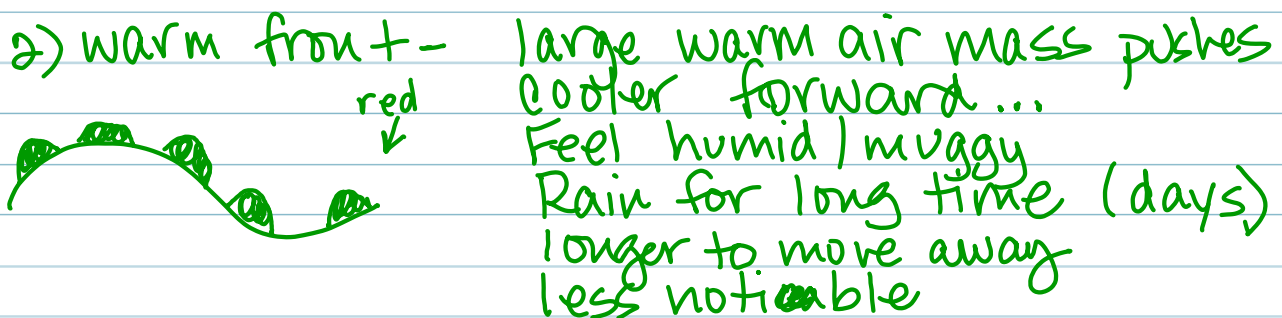 2) warm front- large warm air mass pushes
red cooler forward...
Feel humid/muggy
Rain for long time (days)
longer to move away
less noticable